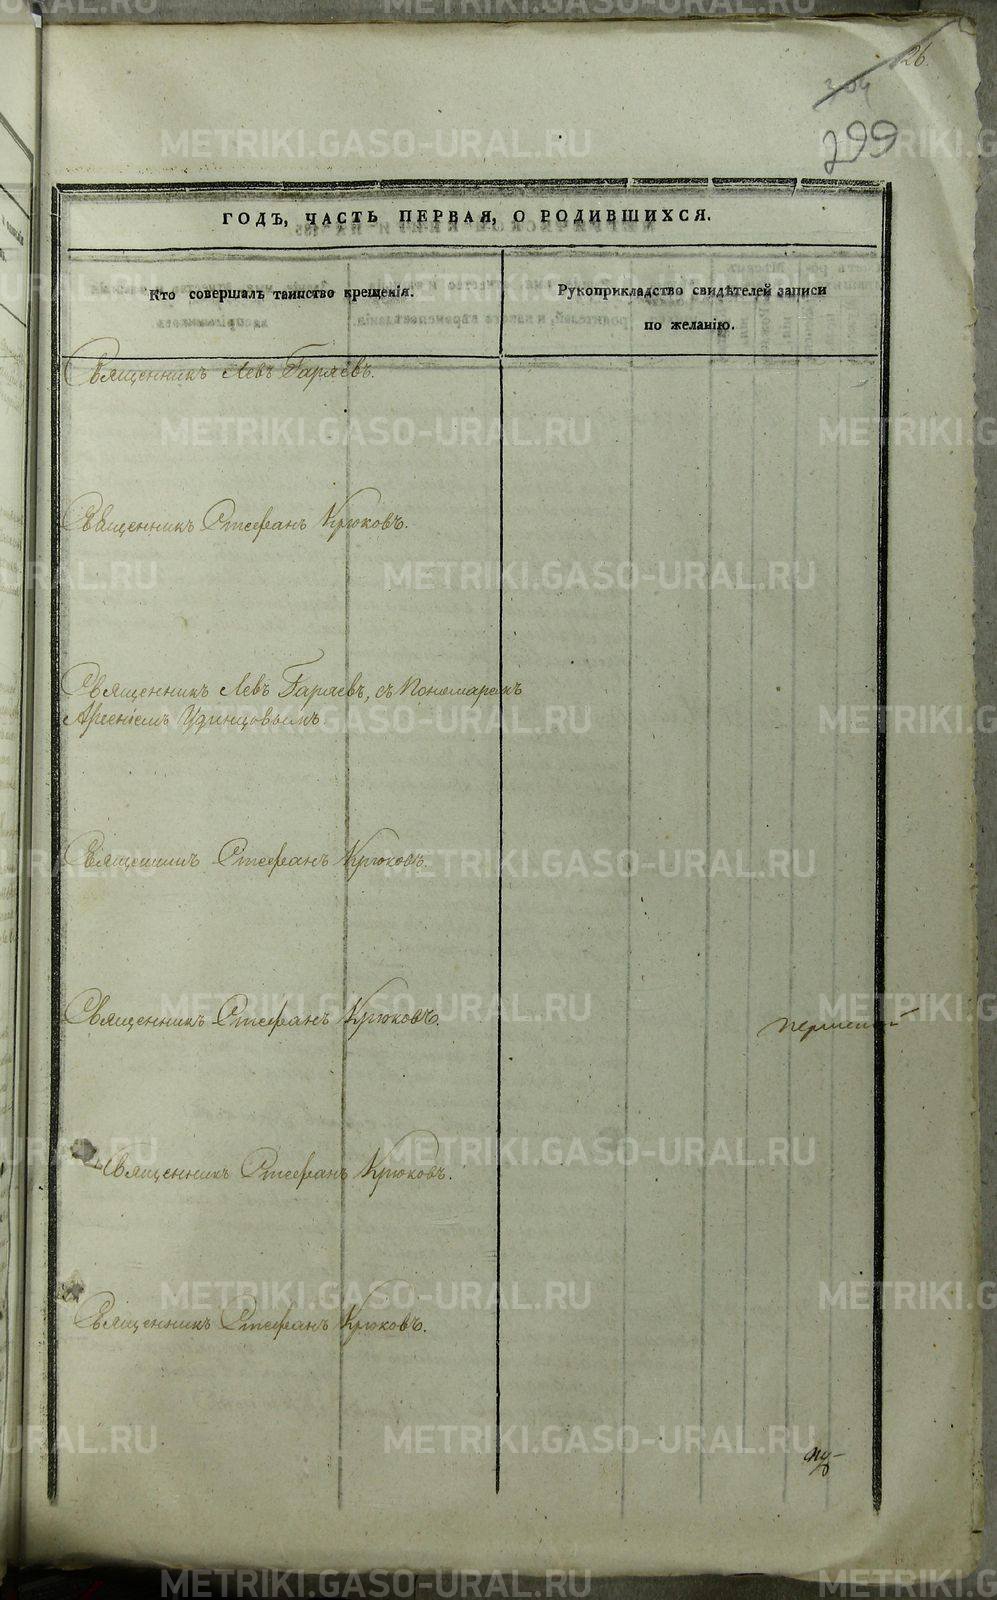 26.
304
299
ГОДЪ, ЧАСТЬ ПЕРВАЯ, О РОДИВШИХСЯ.
Кто совершалъ таинство крещенія.
Рукоприкладство свидѣтелей записи
по желанію.
Священникъ Левъ Гаряевъ.
Священникъ Стефанъ Крюковъ.
Священникъ Левъ Гаряевъ, съ Пономаремъ
Арсеніемъ Удинцовымъ
Священникъ Стефанъ Крюковъ.
Священникъ Стефанъ Крюковъ.
Священникъ Стефанъ Крюковъ.
Священникъ Стефанъ Крюковъ.
METRIKI.GASO-URAL.RU